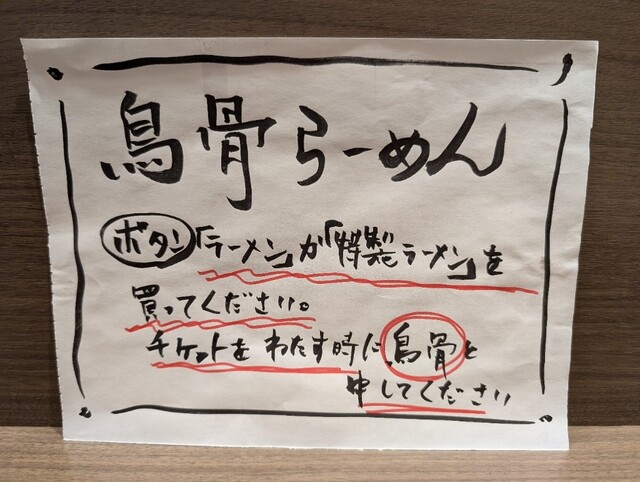 鳥骨らーめん
ボタン「ラーメン」か「特製ラーメン」を
買ってください。
チケットをわたす時に、鳥骨と
申してください